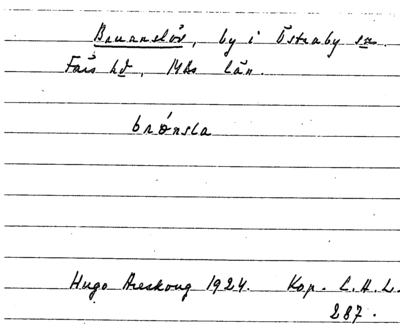 Brunnslöv, by i Östraby sn.
Färs hd, Mhs län.
brǿnsla
Hugo Areskoug 1924. Kop. L.A.L.
287.